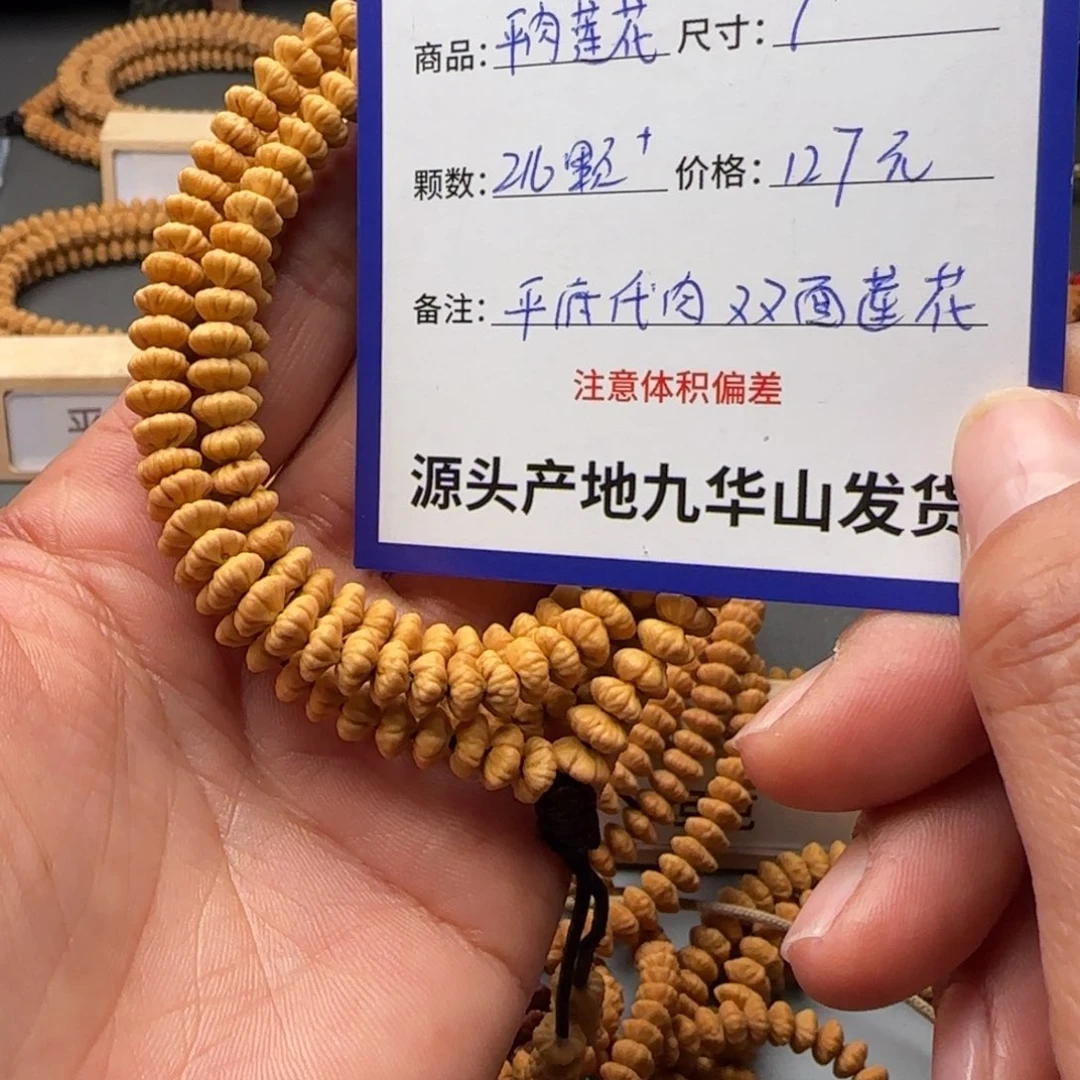 商品：平肉莲花 尺寸：/
颗数：216颗+ 价格：127元
备注：平府代肉双面莲花
注意体积偏差
源头产地九华山发货